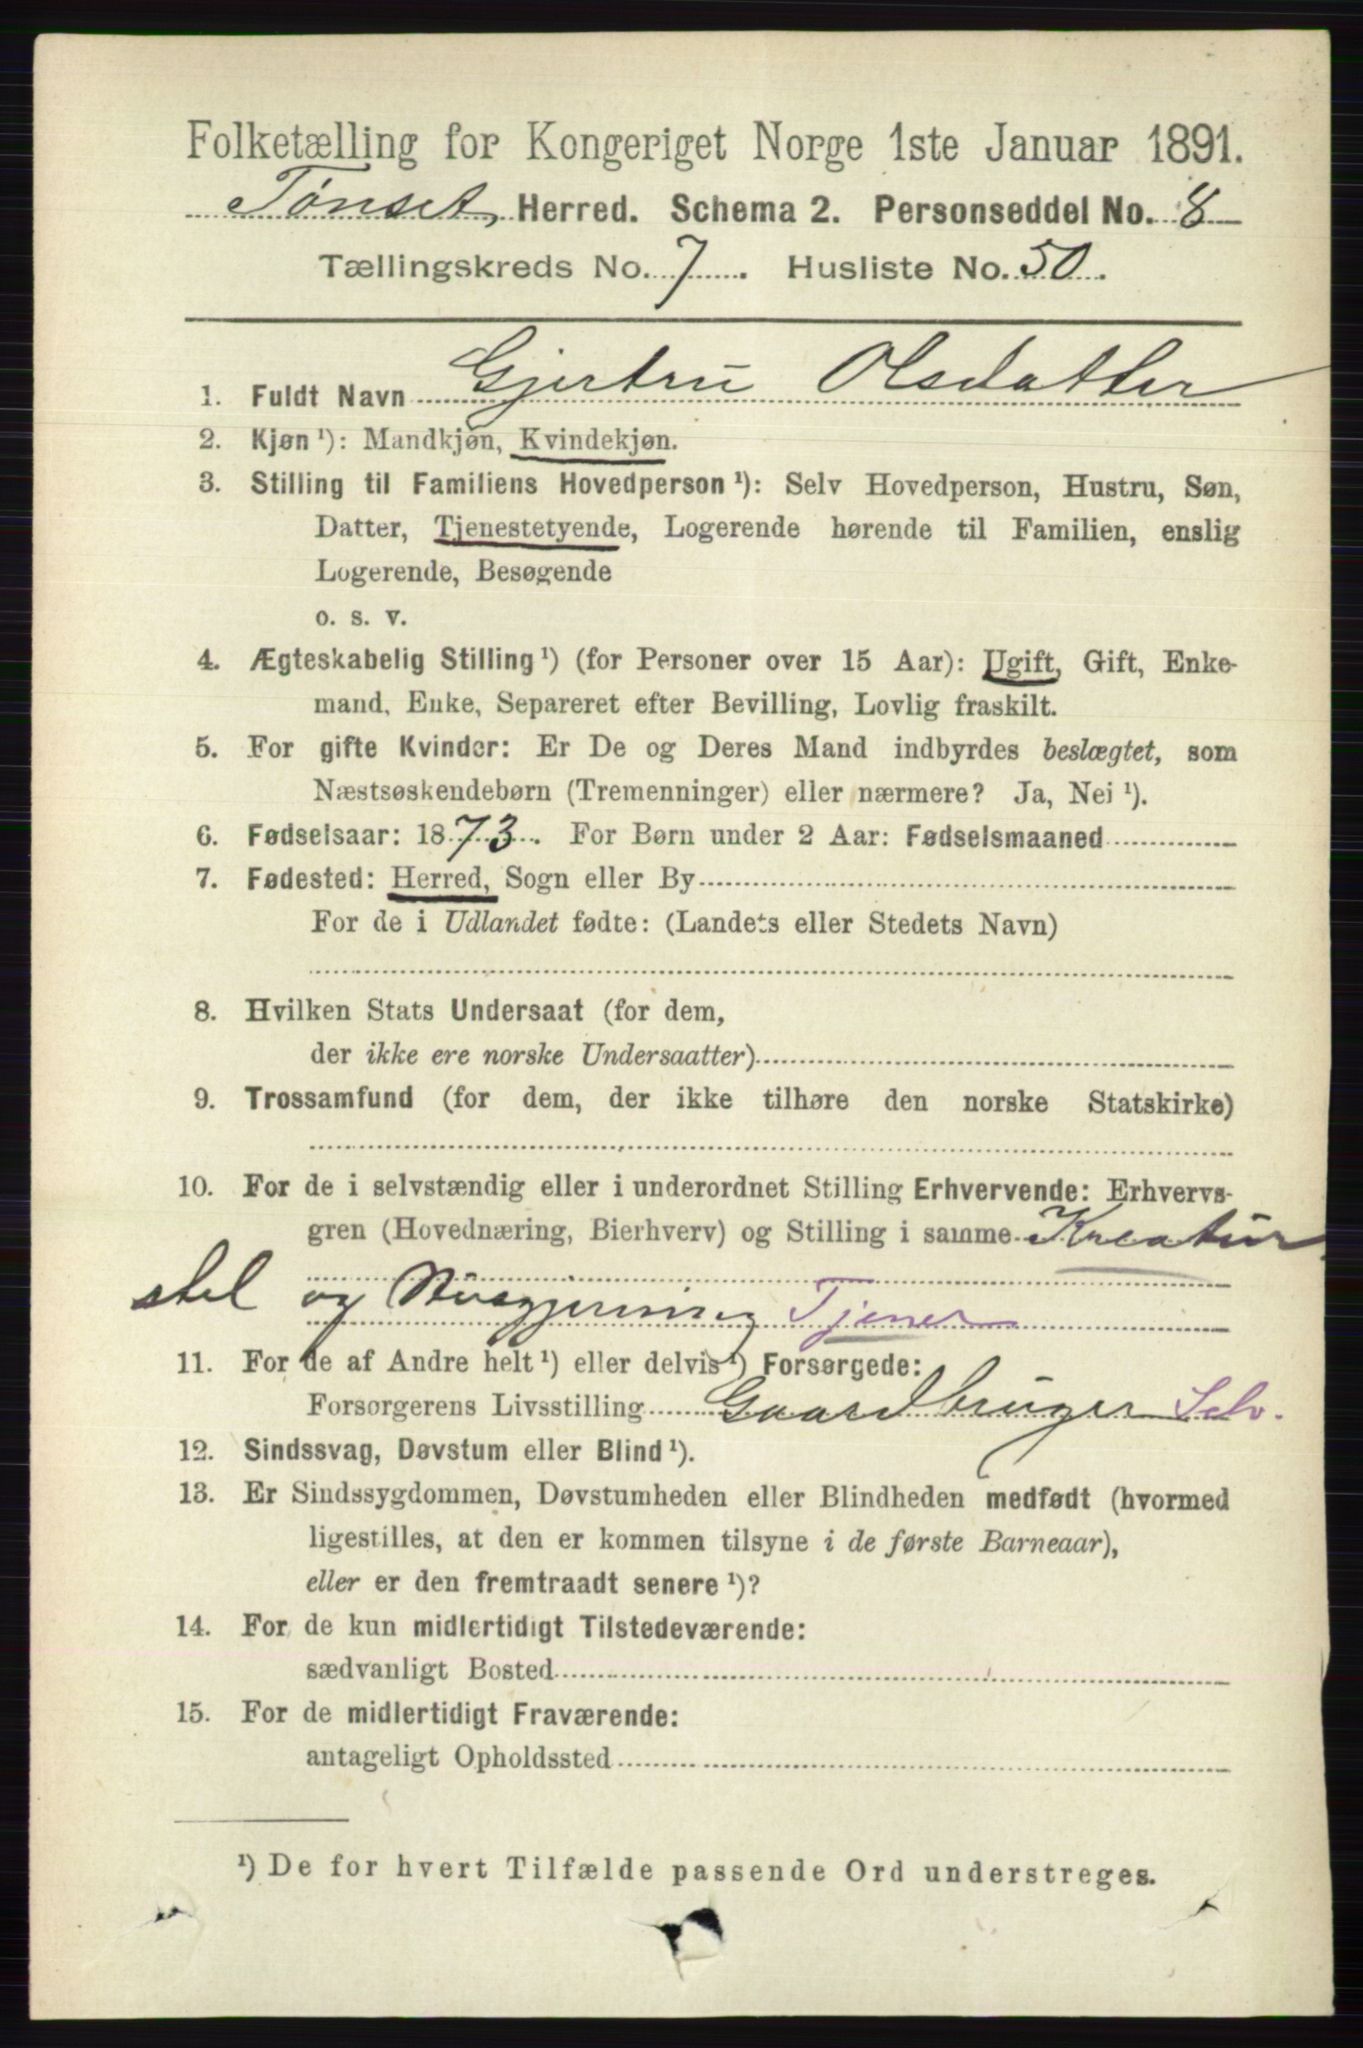 Folketælling for Kongeriget Norge 1ste Januar 1891.
Tønset Herred. Schema 2. Personseddel No. 8
Tællingskreds No. 7. Husliste No. 50.
1. Fuldt Navn Gjertru Olsdatter
2. Kjøn¹): Mandkjøn, Kvindekjøn.
3. Stilling til Familiens Hovedperson¹): Selv Hovedperson, Hustru, Søn,
Datter, Tjenestetyende, Logerende hørende til Familien, enslig
Logerende, Besøgende
o. s. v.
4. Ægteskabelig Stilling¹) (for Personer over 15 Aar): Ugift, Gift, Enke-
mand, Enke, Separeret efter Bevilling, Lovlig fraskilt.
5. For gifte Kvinder: Er De og Deres Mand indbyrdes beslægtet, som
Næstsøskendebørn (Tremenninger) eller nærmere? Ja, Nei¹).
6. Fødselsaar: 1873. For Børn under 2 Aar: Fødselsmaaned
7. Fødested: Herred, Sogn eller By
For de i Udlandet fødte: (Landets eller Stedets Navn)
8. Hvilken Stats Undersaat (for dem,
der ikke ere norske Undersaatter)
9. Trossamfund (for dem, der ikke tilhøre den norske Statskirke)
10. For de i selvstændig eller i underordnet Stilling Erhvervende: Erhvervs-
gren (Hovednæring, Bierhverv) og Stilling i samme Kreatur
stel og Husgjerning Tjener
11. For de af Andre helt¹) eller delvis¹) Forsørgede:
Forsørgerens Livsstilling Gaardbruger Selv.
12. Sindssvag, Døvstum eller Blind¹).
13. Er Sindssygdommen, Døvstumheden eller Blindheden medfødt (hvormed
ligestilles, at den er kommen tilsyne i de første Barneaar),
eller er den fremtraadt senere¹)?
14. For de kun midlertidigt Tilstedeværende:
sædvanligt Bosted
15. For de midlertidigt Fraværende:
antageligt Opholdssted
¹) De for hvert Tilfælde passende Ord understreges.